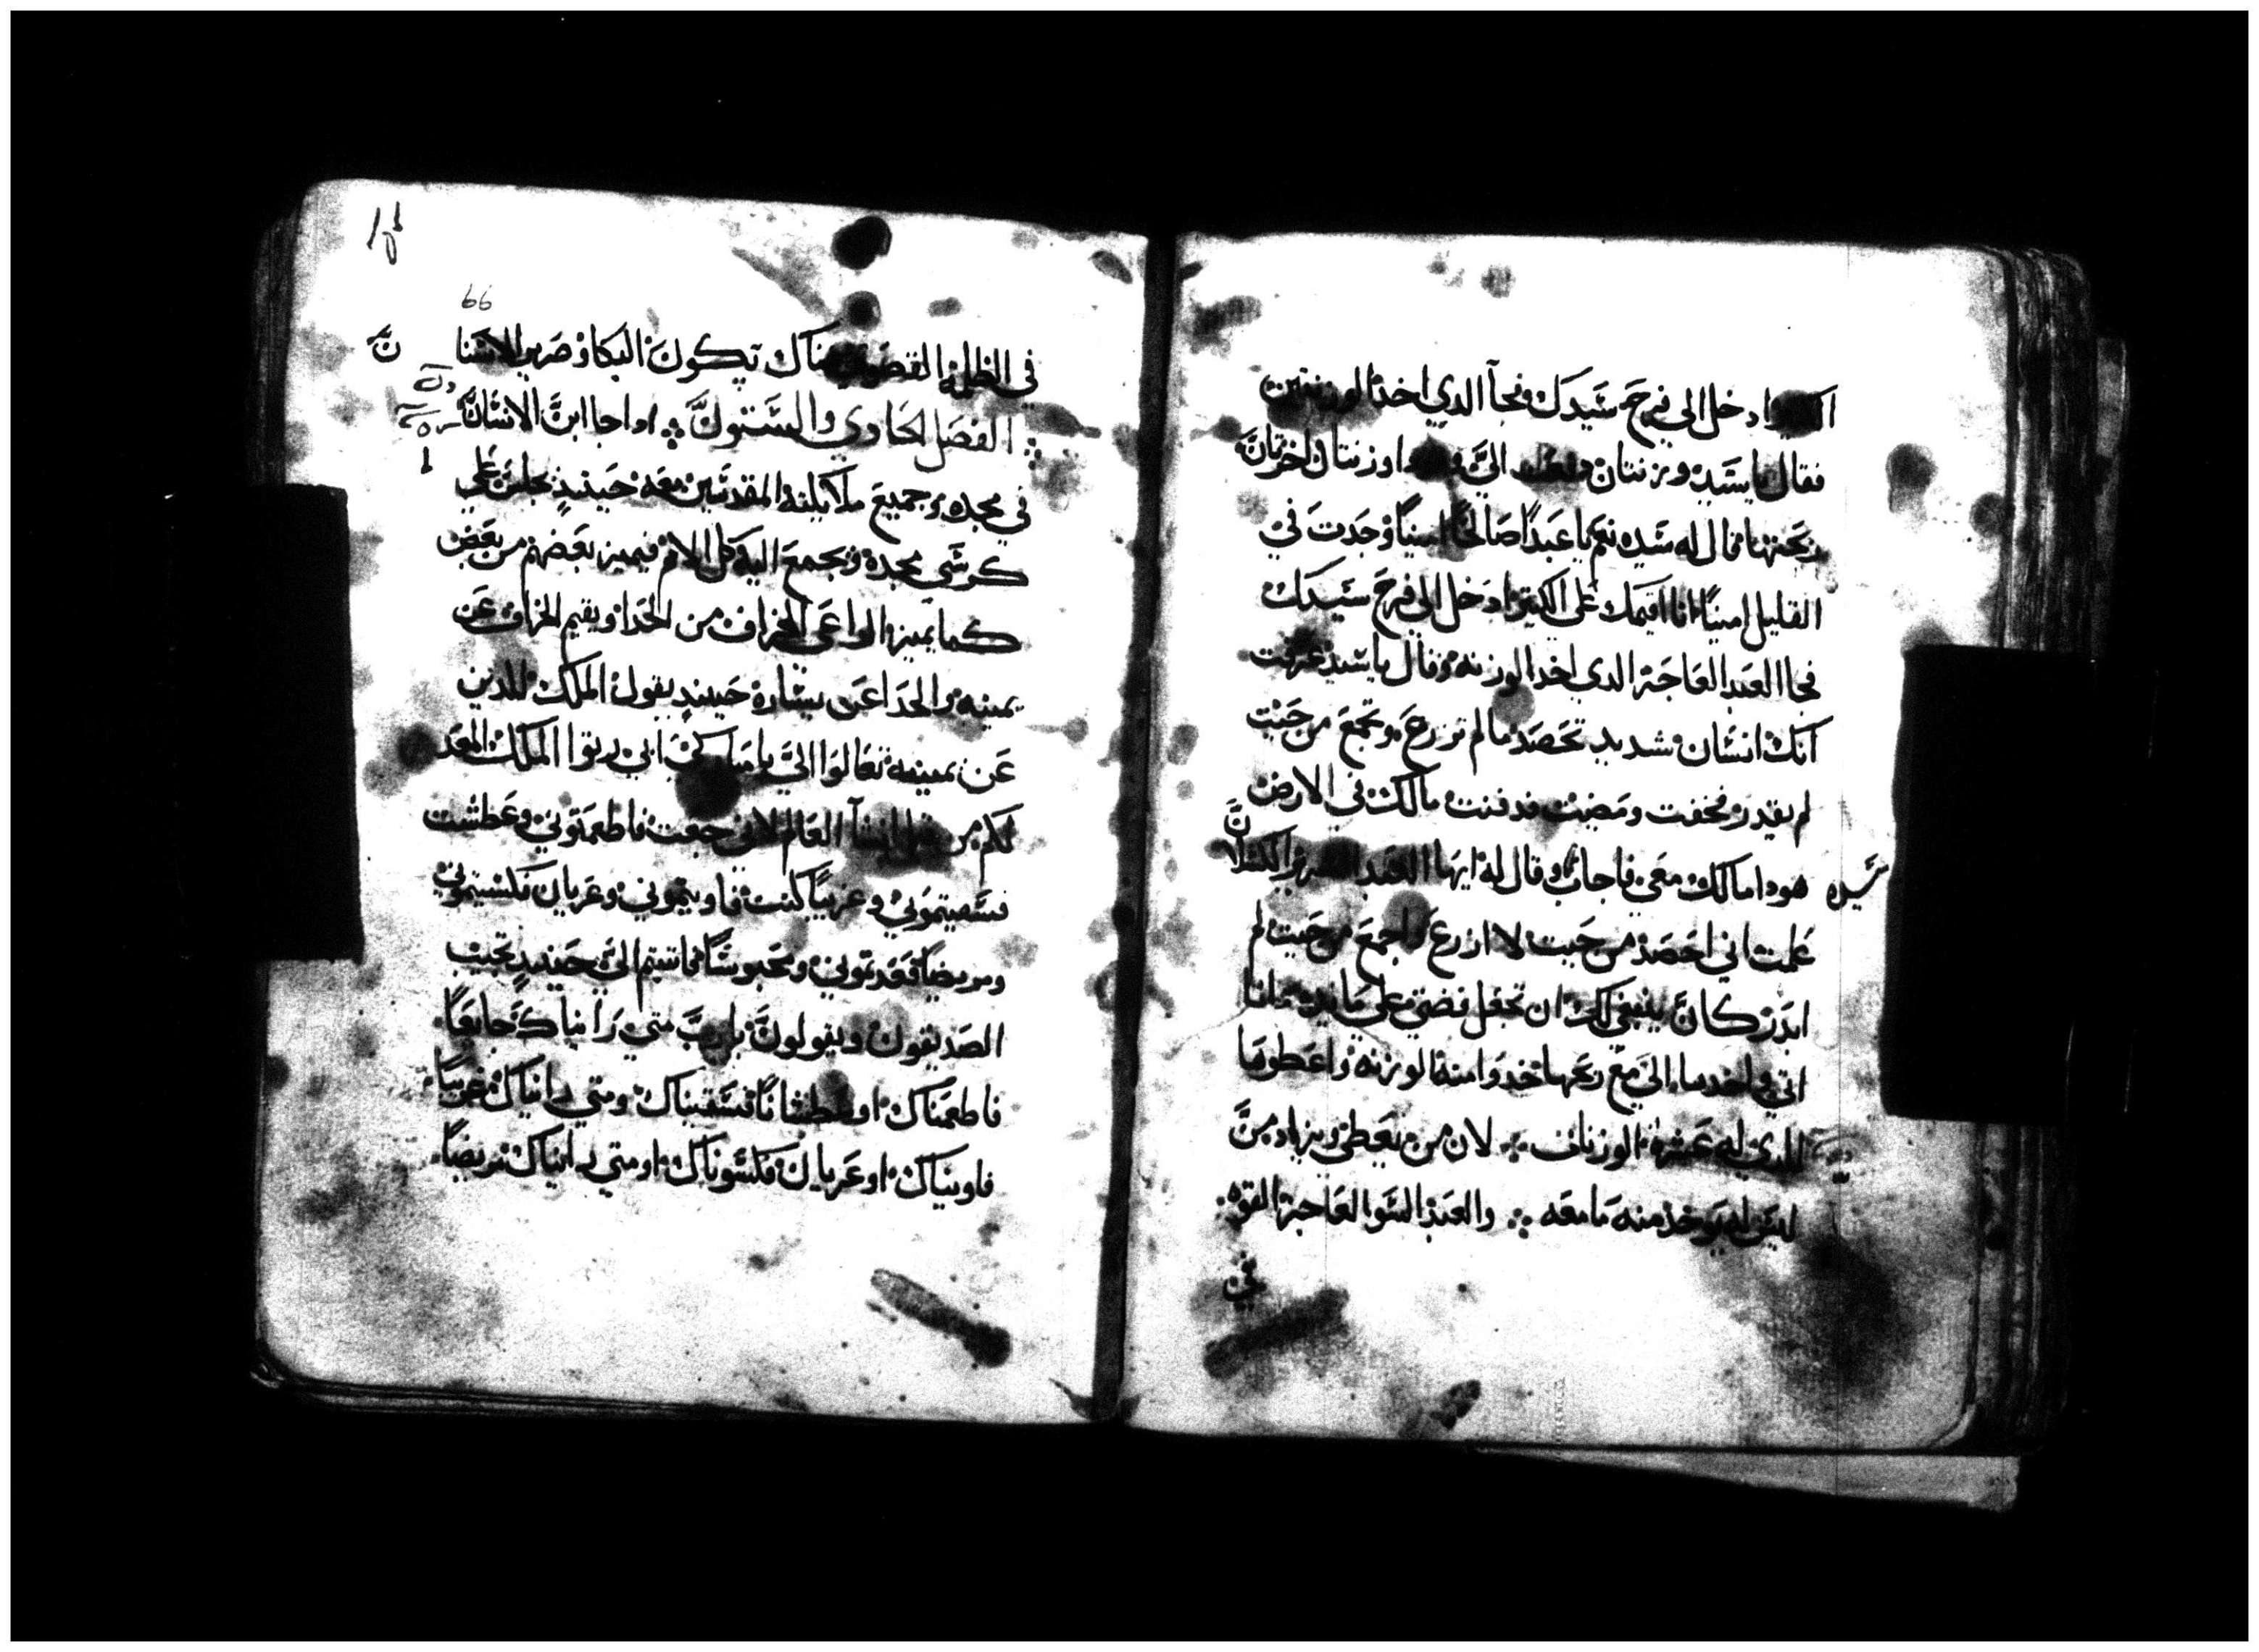 ادخل الي فرح سيدك فجآ الدي اخد الوزنتين
فقال يا سيد وزنتان اليَّ وزنتان اخرتان
ربحتهما فقال له سيده نعم يا عبدًا صالحًا امينًا وجدت في
القليل امينًا انا اقيمك علي الكتير ادخل الي فرح سيدك
فجا العبد العاجز الدي اخد الوزنه وقال يا سيد عرفت
انك انسان شديد تحصد ما لم تزرع وتجمع من حيت
لم تبدر فخفت ومضيت فدفنت مالك في الارض
هودا مالك معي فاجاب وقال له ايها العبد الشرير الكسلان
سيده
علمت اني احصد من حيت لا ازرع واجمع من حيت لم
ابدر كان ينبغي لك ان تجعل فضتي علي مايده وانا
اتي واخد مالي مع ربحها خدوا منه الوزنه واعطوها
للدي له عشرة الوزنات ۞ لان من يعطي ويزاد من
ليس له يوخد منه ما معه ۞ والعبد السو العاجز القوه
في
66
في الظلمه القصوي هناك يكون البكا وصرير الاسنان
الفصل الحادي والستون ۞ ادا جا ابن الانسان
في مجده وجميع ملايكته المقدسين معه حينيدٍ يجلس علي
كرسي مجده وتجمع اليه كل الامم فيميز بعضهم من بعض
كما يميز الراعي الخراف من الجدا ويقيم الخراف عن
يمينه والجدا عن يساره حينيدٍ يقول الملك للدين
عن يمينه تعالوا اليَّ يا مباركي ابي رتوا الملك المعد
لكم من قبل انشآ العالم لاني جعت فاطعمتوني وعطشت
فسقيتموني وغريبًا كنت فاويتموني وعريان فكسيتموني
ومريضًا فعدتموني ومحبوسًا فاتيتم اليَّ حينيدٍ تجيب
الصديقون ويقولون يا رب متي رايناك جايعًا
فاطعمناك او عطشانًا فسقيناك ومتي رايناك غريبًا
فاويناك او عريان فكسوناك او متي رايناك مريضًا